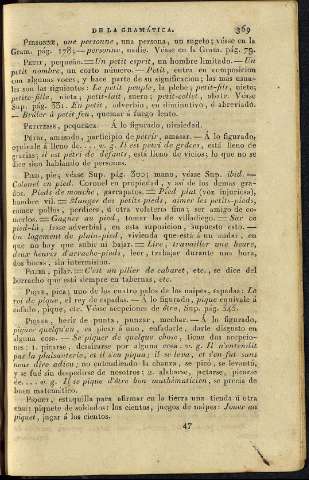 DE LA GRAMÁTICA. 369
PERSONNE, une personne, una persona, un sugeto; véase en la
Gram. pág. 178; — personne, nadie. Véase en la Gram. pág. 79.
PETIT, pequeño. = Un petit esprit, un hombre limitado. — Un
petit nombre, un corto número. — Petit, entra en composicion
con algunas voces, y hace parte de su significacion; las mas usua-
les son las siguientes: Le petit peuple, la plebe; petit-fils, nieto;
petite-fille, nieta; petit-lait, suero; petit-collet, abate. Véase
Sup. pág. 331. En petit, adverbio, en diminutivo, ó abreviado.
— Brûler à petit feu, quemar á fuego lento.
PETITESSE, pequeñez. — Á lo figurado, cortedad.
PÉTRI, amasado, participio de pétrir, amasar. — Á lo figurado,
equivale á lleno de.... v. g. Il est pétri de grâces, está lleno de
gracias; il est pétri de défauts, está lleno de vicios; lo que no se
dice sino hablando de personas.
PIED, pie; véase Sup. pág. 300; mano, véase Sup. ibid. —
Colonel en pied. Coronel en propiedad, y así de los demas gra-
dos. Pieds de mouche, garrapatos. = Pied plat (voz injuriosa),
hombre vil. = Manger des petits-pieds, aimer les petits-pieds,
comer pollos, perdices, ú otra volateria fina, ser amigo de co-
merlos. = Gagner au pied, tomar las de villadiego. — Sur ce
pied-là, frase adverbial, en esta suposicion, supuesto esto. —
Un logement de plain-pied, vivienda que está á un andar, en
que no hay que subir ni bajar. = Lire, travailler une heure,
deux heures d'arrache-pieds, leer, trabajar durante una hora,
dos horas, sin intermision.
PILIER, pilar. = C'est un pilier de cabaret, etc., se dice del
borracho que está siempre en tabernas, etc.
PIQUE, pica; uno de los cuatro palos de los naipes, espadas: Le
roi de pique, el rey de espadas. — Á lo figurado, pique equivale á
enfado, pique, etc. Véase acepciones de être, Sup. pág. 348.
PIQUER, herir de punta, punzar, mechar. — Á lo figurado,
piquer quelqu'un, es picar á uno, enfadarle, darle disgusto en
alguna cosa. — Se piquer de quelque chose, tiene dos acepcio-
nes: 1. picarse, desairarse por alguna cosa v. g. Il n'entendit
pas la plaisanterie, et il s'en piqua; il se leva, et s'en fut sans
nous dire adieu; no entendiendo la chanza, se picó, se levantó,
y se fué sin despedirse de nosotros: 2. alabarse, jactarse, picarse
de.... v. g. Il se pique d'être bon mathématicien, se precia de
buen matemático.
PIQUET, estaquilla para afirmar en la tierra una tienda ú otra
cosa: piquete de soldados: los cientos, juegos de naipes: Jouer au
piquet, jugar á los cientos.
47